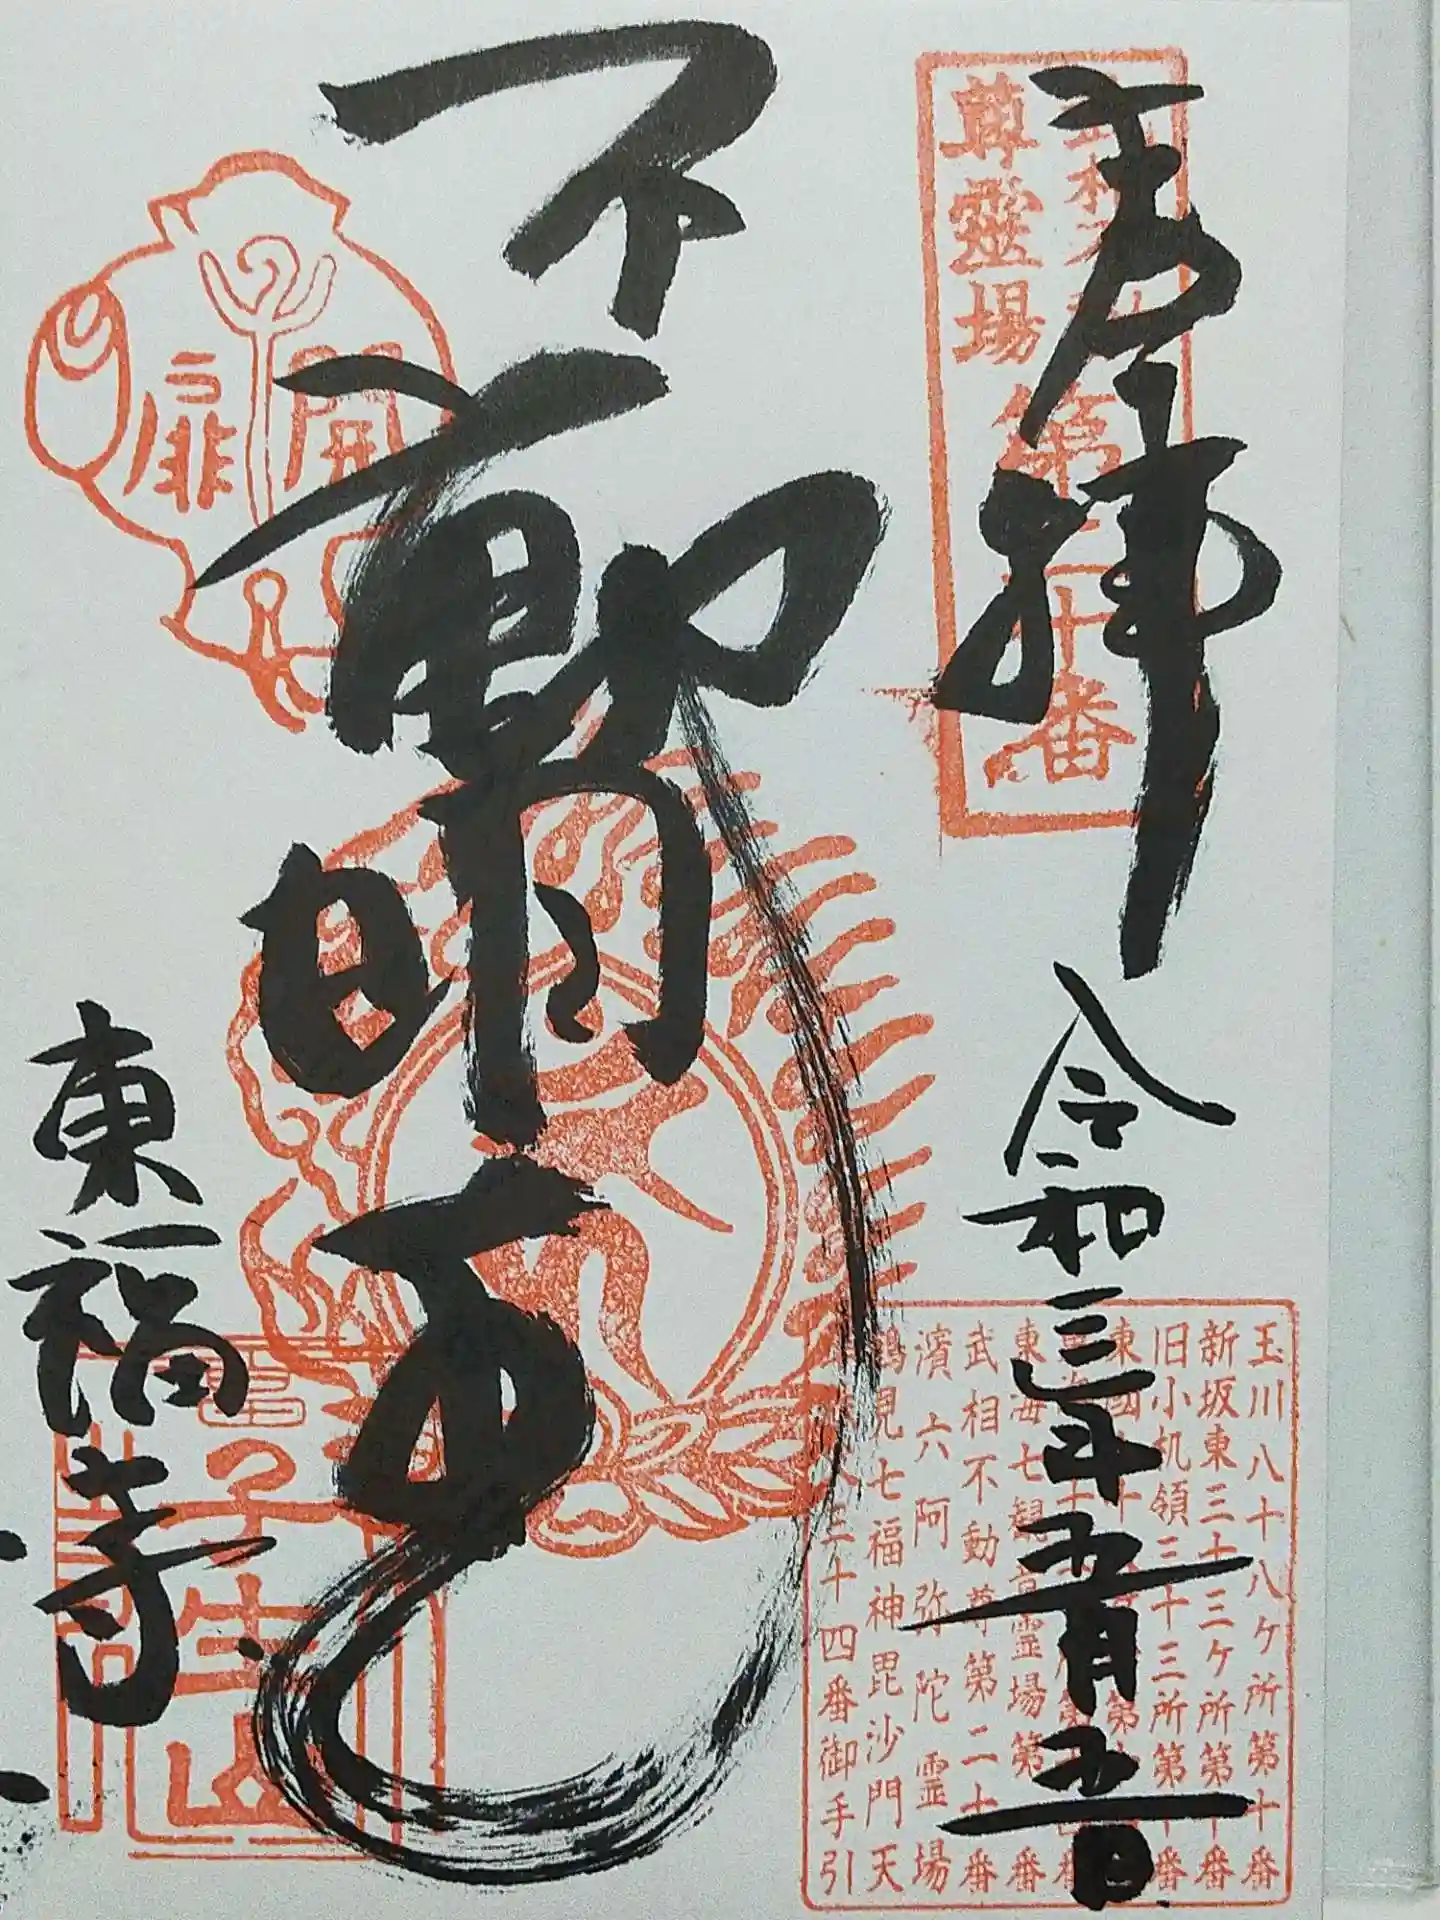 奉拝
令和三年五月五日
尊霊場
第二十番
不動明王
開扉
東福寺
子生山
玉川八十八ケ所第十番
新坂東三十三ケ所第番
旧小机領三十三所第番
東海七観音霊場第番
武相不動尊第二十番
濱六阿弥陀霊場
鶴見七福神毘沙門天
三十四番御手引